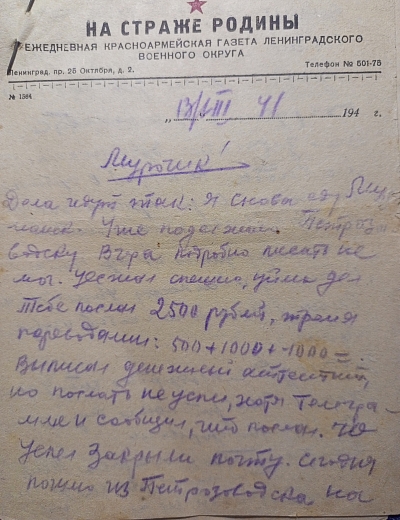 НА СТРАЖЕ РОДИНЫ
ЕЖЕДНЕВНАЯ КРАСНОАРМЕЙСКАЯ ГАЗЕТА ЛЕНИНГРАДСКОГО
ВОЕННОГО ОКРУГА
Ленинград, пр. 25 Октября, д. 2.
Телефон № 501-75
№ 1564
„13/VIII 41 194 г.
Мурочик!
Дела идут так: я снова еду
манск. Уже подъезжаю Петроза
водску. Вчера подробно писать не
мог. Уезжал спешно, уйма дел
Тебе послал 2500 рублей, тремя
переводами: 500+1000+1000=.
Выписал денежный аттестат,
но послать не успел, хотя Телегра-
мме и сообщил, что послал. Не
успел Закрыли почту. Сегодня
пошлю из Петрозаводска на